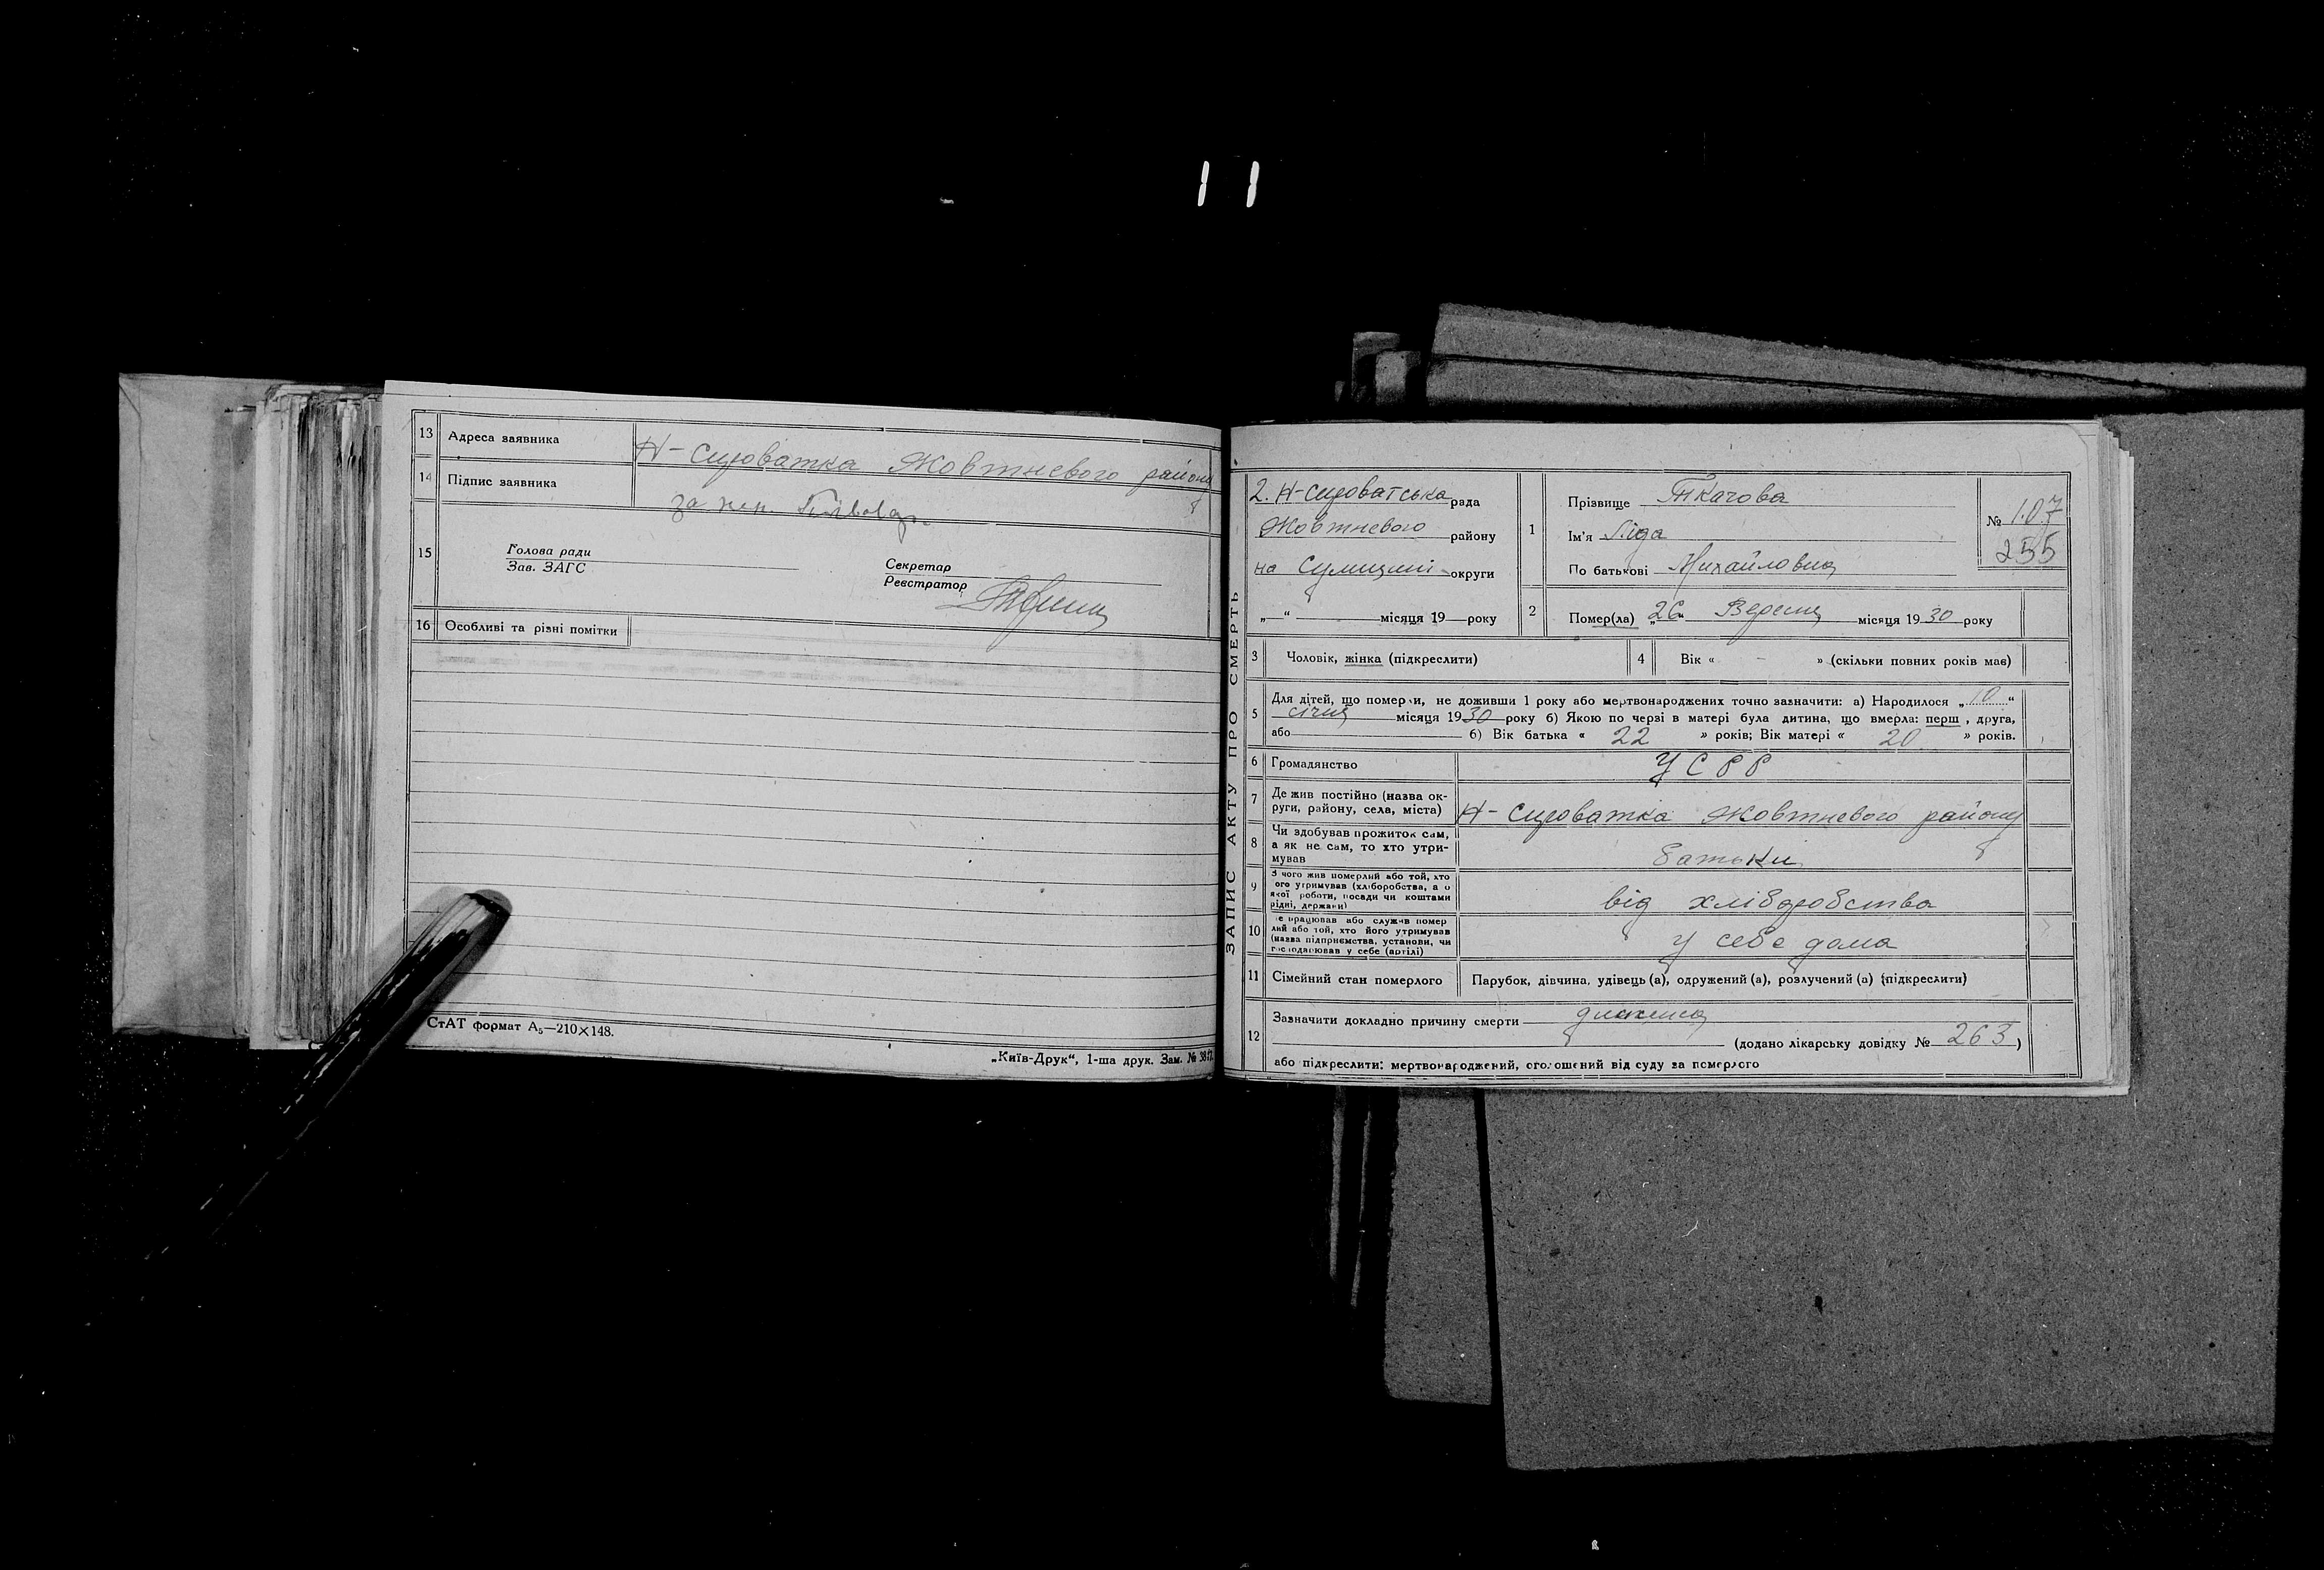 11
13 Адреса заявника Н-Сироватка Жовтневого району
14 Підпис заявника за неп.
15 Голова ради
Зав. ЗАГС
Секретар
Реєстратор
16 Особливі та різні помітки
СтАТ формат А5—210×148.
„Київ-Друк“, 1-ша друк. Зам. №
ЗАПИС АКТУ ПРО СМЕРТЬ
2. Н-Сироватська рада
Жовтневого району
на Сумщині округи
„ “ місяця 19 року
1 Прізвище Ткачова
Ім'я Ліда
По батькові Михайловна
№ 107
255
2 Помер(ла) „26“ Вересня місяця 1930 року
3 Чоловік, жінка (підкреслити)
4 Вік « - » (скільки повних років мав)
5 Для дітей, що померли, не доживши 1 року або мертвонароджених точно зазначити: а) Народилося „10“
січня місяця 1930 року б) Якою по черзі в матері була дитина, що вмерла: перш , друга,
або б) Вік батька « 22 » років; Вік матері « 20 » років.
6 Громадянство УСРР
7 Де жив постійно (назва ок-
руги, району, села, міста) Н-Сироватка Жовтневого району
8 Чи здобував прожиток сам,
а як не сам, то хто утри-
мував батьки
9 З чого жив померлий або той, хто
ого утримував (хліборобства, а о
якої роботи, посади чи коштами
рідні, держави) від хліборобства
10 е працював або служив помер
лий або той, хто його утримував
(назва підприємства, установи, чи
господарював у себе (артілі) у себе дома
11 Сімейний стан померлого Парубок, дівчина, удівець (а), одружений (а), розлучений (а) (підкреслити)
12 Зазначити докладно причину смерти
(додано лікарську довідку № 263)
або підкреслити: мертвонароджений, оголошений від суду за померлого